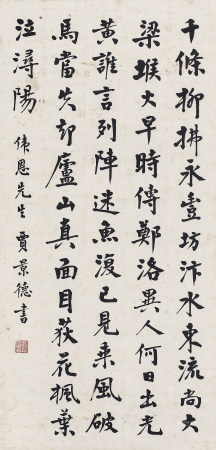 千條柳拂永豐坊汴水東流尚大
梁堠火早時傳鄭洛異人何日出光
黃誰言列陣速魚復已見乘風破
馬當失却廬山真面目荻花楓葉
泣潯陽
偉恩先生 賈景德書